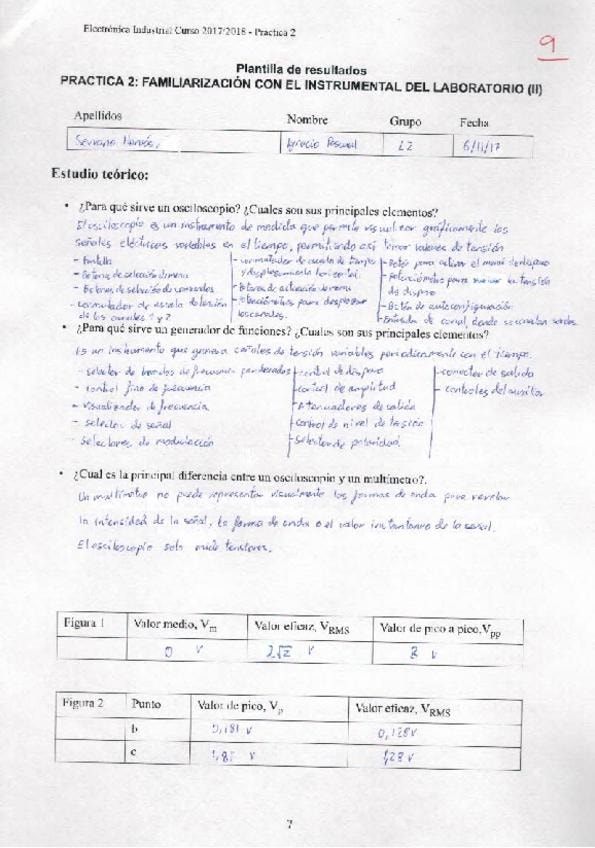 Electrónica Industrial Curso 2017/2018 - Practica 2
9
Plantilla de resultados
PRACTICA 2: FAMILIARIZACIÓN CON EL INSTRUMENTAL DEL LABORATORIO (II)
Apellidos Nombre Grupo Fecha
Serrano Ignacio Pascual L2 6/11/17
Estudio teórico:
• ¿Para qué sirve un osciloscopio? ¿Cuales son sus principales elementos?
El osciloscopio es un instrumento de medida que permite visualizar gráficamente las
señales eléctricas variables en el tiempo, permitiendo así tomar valores de tensión
- Pantalla
- Botones de selección de menu
- Botones de selección de comandos
- conmutador de escala de tensión
de los canales 1 y 2
- conmutador de escala de tiempo
y desplazamiento horizontal.
- Botones de activación de menu
- Potenciómetros para desplazar
los canales.
- Botón para activar el menú de disparo
- Potenciómetro para variar la tensión
de disparo
- Botón de autoconfiguración
- Entrada de canal, donde se conectan sondas.
• ¿Para qué sirve un generador de funciones? ¿Cuales son sus principales elementos?
Es un instrumento que genera señales de tensión variables periodicamente con el tiempo.
- selector de bandas de frecuencia
- control fino de frecuencia
- visualizador de frecuencia
- selector de señal
- selectores de modulación
- control de disparo
control de amplitud
- Atenuadores de salida
control de nivel de tensión
- selector de polaridad.
- conector de salida
- controles del
• ¿Cual es la principal diferencia entre un osciloscopio y un multímetro?.
Un multimetro no puede representar visualmente las formas de onda para revelar
la intensidad de la señal, la forma de onda o el valor instantaneo de la señal.
El osciloscopio solo mide tensiones.
Figura 1 Valor medio, Vm Valor eficaz, VRMS Valor de pico a pico,Vpp
0 V 2√2 V 8 V
Figura 2 Punto Valor de pico, Vp Valor eficaz, VRMS
b 0,181 V 0,128 V
c 1,81 V 1,28 V
7